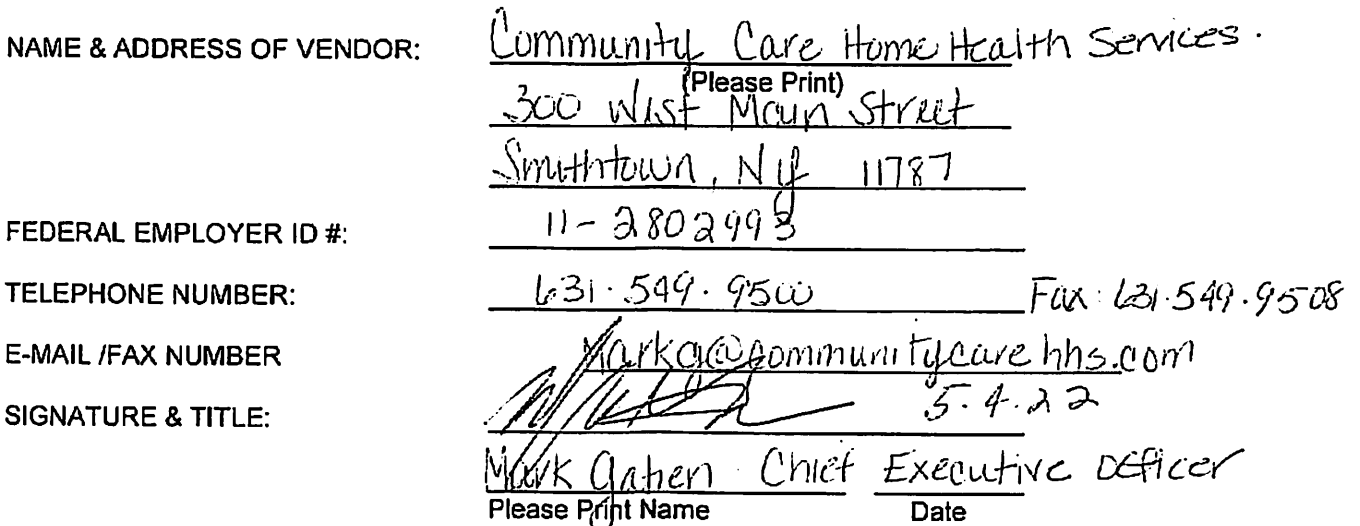 NAME & ADDRESS OF VENDOR: Community Care Home Health Services.
(Please Print)
300 West Main Street
Smithtown, NY 11787
FEDERAL EMPLOYER ID #: 11-2802993
TELEPHONE NUMBER: 631.549.9500 Fax: 631.549.9508
E-MAIL /FAX NUMBER Markg@communitycarehhs.com
SIGNATURE & TITLE: 5.4.22
Mark Chief Executive Officer
Please Print Name Date